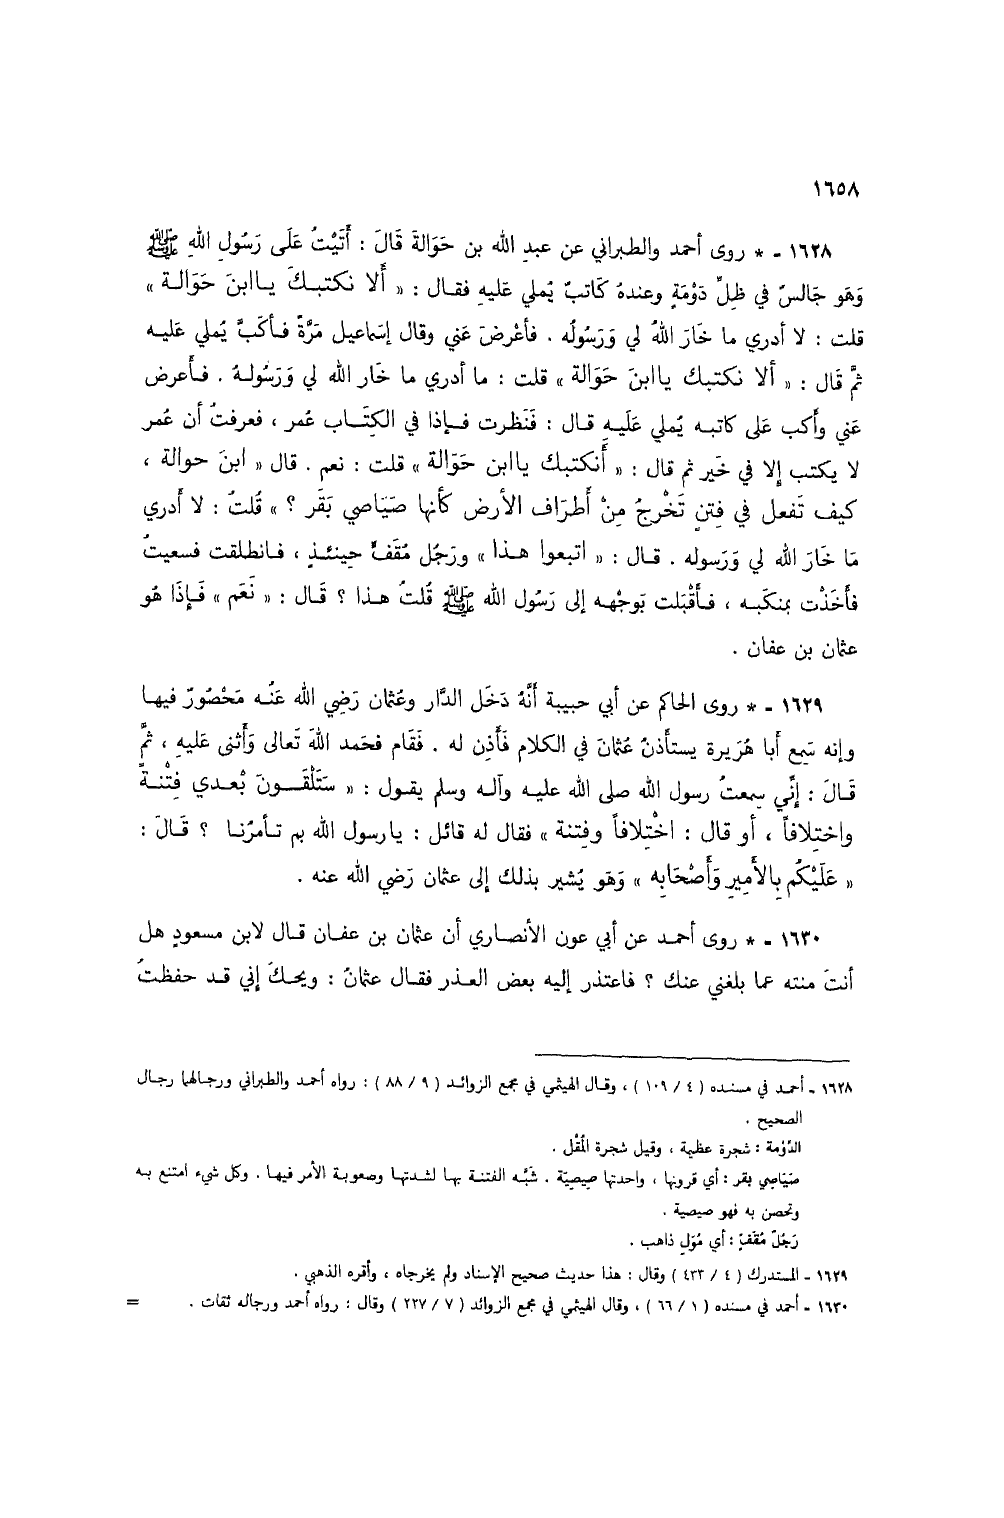 ١٦٥٨
١٦٢٨ - * روى أحمد والطبراني عن عبدِ الله بن حَوَالةَ قَالَ : أَتَيْتُ عَلَى رَسُولِ اللهِ ﷺ
وَهَو جَالسٌ في ظِلِّ دَوْمَةٍ وعندهُ كَاتبٌ يُملي عَليهِ فقال : « أَلا نكتبكَ ياابنَ حَوَالة »
قلت : لا أدري ما خَارَ اللهُ لي وَرَسُولُه . فأعْرضَ عَني وقال إسَماعيل مَرَّةً فأكَبَّ يُملي عَليه
ثمَّ قَال : « ألا نكتبك ياابنَ حَوَالة » قلت : ما أدري ما خَار الله لي وَرَسُولهُ . فأَعرض
عَني وأَكب عَلى كاتبه يُملي عَلَيهِ قال : فَنَظرت فإذا في الكِتَاب عُمر ، فعرفتُ أن عُمر
لا يكتب إلا في خَير ثم قال : « أَنكتبك ياابن حَوّالة » قلتُ : نعم . قال « ابنَ حوالة ،
كيف تَفعل في فِتنٍ تَخْرجُ مِنْ أَطرَاف الأرض كأنها صَيَاصي بَقَر ؟ » قُلتُ : لا أَدري
مَا خَارَ الله لي وَرَسوله . قال : « اتبعوا هذا » ورَجُل مُقَفٍّ حِينئذٍ ، فانطلقت فسعيتُ
فأَخَذْت بمنكَبه ، فأَقْبَلت بَوجْهه إلى رَسُول الله ﷺ قُلتُ هذا ؟ قَال : « نَعَم » فَإِذَا هُو
عثمان بن عفان .
١٦٢٩ - * روى الحاكم عن أبي حبيبة أَنَّهُ دَخَل الدَّار وعُثمان رَضِي الله عَنُه مَحْصُورٌ فيها
وإنه سَمِع أَبا هُرَيرة يستأذنُ عُثمانَ في الكلام فَأَذِن له . فَقَام فحَمد اللهَ تَعالى وَأَثنى عَليهِ ، ثمَّ
قَالَ : إنِّي سِمعتُ رسول الله صلى الله عليه وآله وسلم يقول : « سَتَلْقَونَ بُعدي فِتْنةً
واختِلافاً ، أو قال : اخْتِلافاً وفِتنة » فقال له قائل : يارسول الله بم تأمرُنا ؟ قَالَ :
« عَلَيْكُم بِالأَمِيرِ وَأَصْحَابِه » وَهَو يُشير بذلك إلى عثمان رَضي الله عنه .
١٦٣٠ - * روى أحمد عن أبي عون الأنصاري أن عثمان بن عفان قال لابن مسعودٍ هل
أنتَ منته عما بلغني عنك ؟ فاعتذر إليه بعض العذر فقال عثمانُ : ويحكَ إني قد حفظتُ
١٦٢٨ - أحمد في مسنده ( ٤ / ١٠٩ ) ، وقال الهيثمي في مجمع الزوائد ( ٩ / ٨٨ ) : رواه أحمد والطبراني ورجالهما رجال
الصحيح .
الدَّوْمة : شجرة عظيمة ، وقيل شجرة المُقْل .
صَيَاصِي بقر : أي قرونها ، واحدتها صِيصِيّة . شبَّه الفتنة بها لشدتها وصعوبة الأمر فيها . وكل شيء امتنع به
وتحصن به فهو صيصية .
رَجُلٌ مُقَفٍّ : أي مُوَلٍ ذاهب .
١٦٢٩ - المستدرك ( ٤ / ٤٣٣ ) وقال : هذا حديث صحيح الإسناد ولم يخرجاه ، وأقره الذهبي .
١٦٣٠ - أحمد في مسنده ( ١ / ٦٦ ) ، وقال الهيثمي في مجمع الزوائد ( ٧ / ٢٢٧ ) وقال : رواه أحمد ورجاله ثقات . =